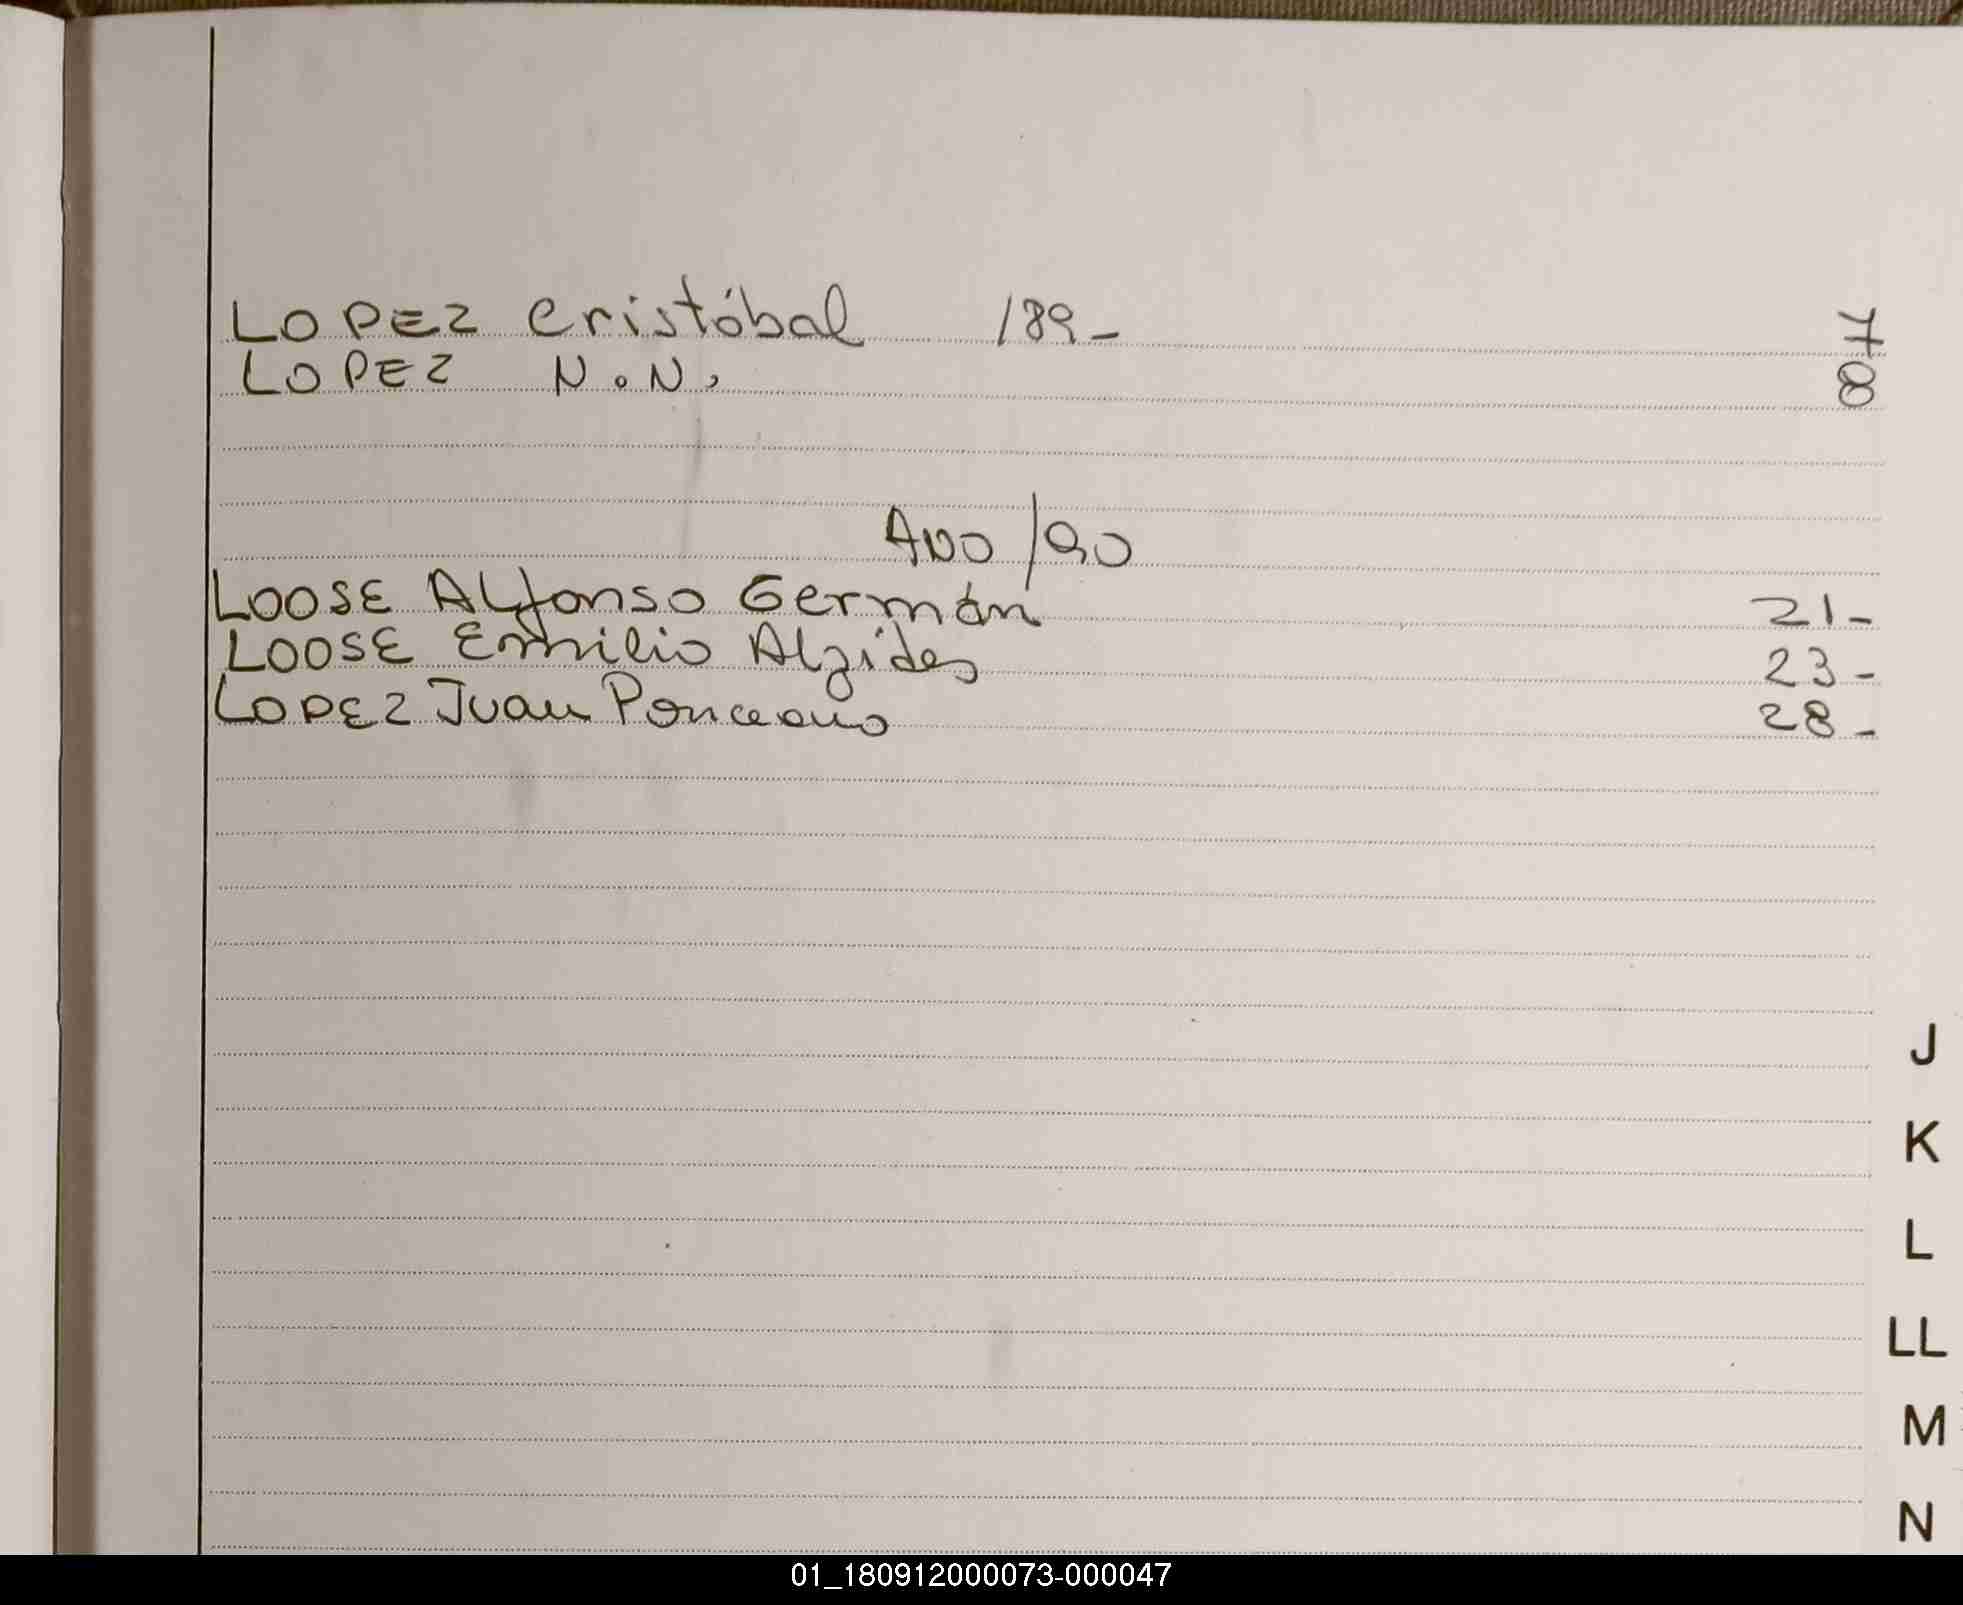 LOPEZ Cristóbal 189- 7
LOPEZ N.N. 8
AÑO /90
LOOSE Alfonso Germán 21-
LOOSE Emilio Alzides 23-
LOPEZ Juan Ponceano 28-
J
K
L
LL
M
N
01_180912000073-000047